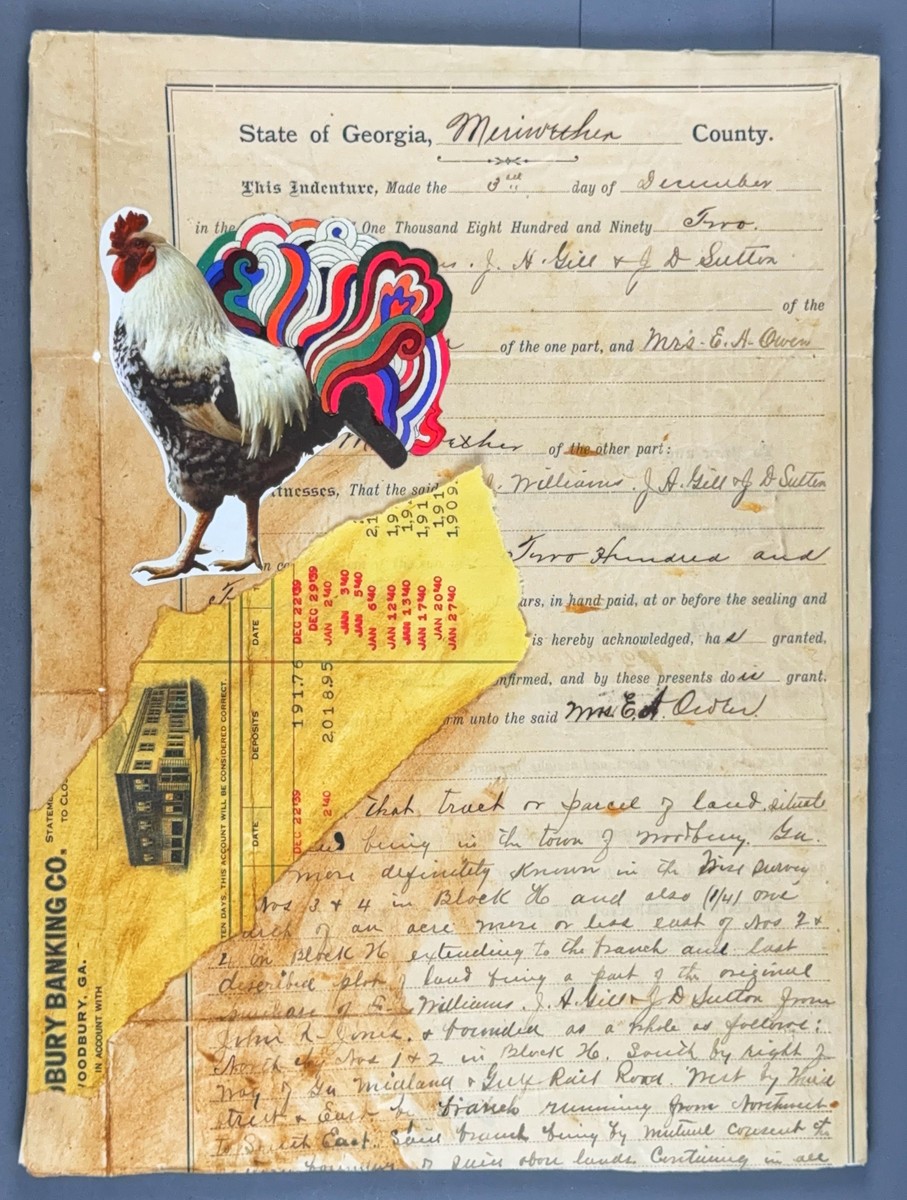 State of Georgia, Meriwether County.
This Indenture, Made the 3rd day of December
in the One Thousand Eight Hundred and Ninety Two.
J. A. Gill & J D Sutton
of the
of the one part, and Mrs. E. A. Owen
of the other part:
itnesses, That the said Williams. J. A. Gill & J D Sutton
Two Hundred and
ars, in hand paid, at or before the sealing and
is hereby acknowledged, ha granted,
nfirmed, and by these presents do grant.
rm unto the said Mrs. E. A.
that tract or parcel of land situate
being in the town of Woodbury. Ga.
more definitely known in the survey
Nos 3 & 4 in Block H and also (1/4) one
of an acre more or less east of Nos 2 &
in Block H extending to the branch and last
described plot of land being a part of the original
Williams. J. A. Gill & J D Sutton from
John Jones. & bounded as a whole as follows:
North by Nos 1 & 2 in Block H. South by right of
Way of Ga Midland & Gulf Rail Road. West by Third
street & East by branch running from Northwest
to South East. Said branch being by mutual consent the
of lands Containing in all
BURY BANKING CO.
OODBURY, GA.
IN ACCOUNT WITH
STATEM
TO CLO
TEN DAYS, THIS ACCOUNT WILL BE CONSIDERED CORRECT.
DATE DEPOSITS DATE
DEC 22'39 191.76 DEC 22'39
DEC 29'39
2'40 2,018.95 JAN 2'40
JAN 3'40
JAN 5'40
JAN 6'40 2,1
JAN 12'40 1,9
JAN 13'40 1,9
JAN 17'40 1,91
JAN 20'40 1,91
JAN 27'40 1,909